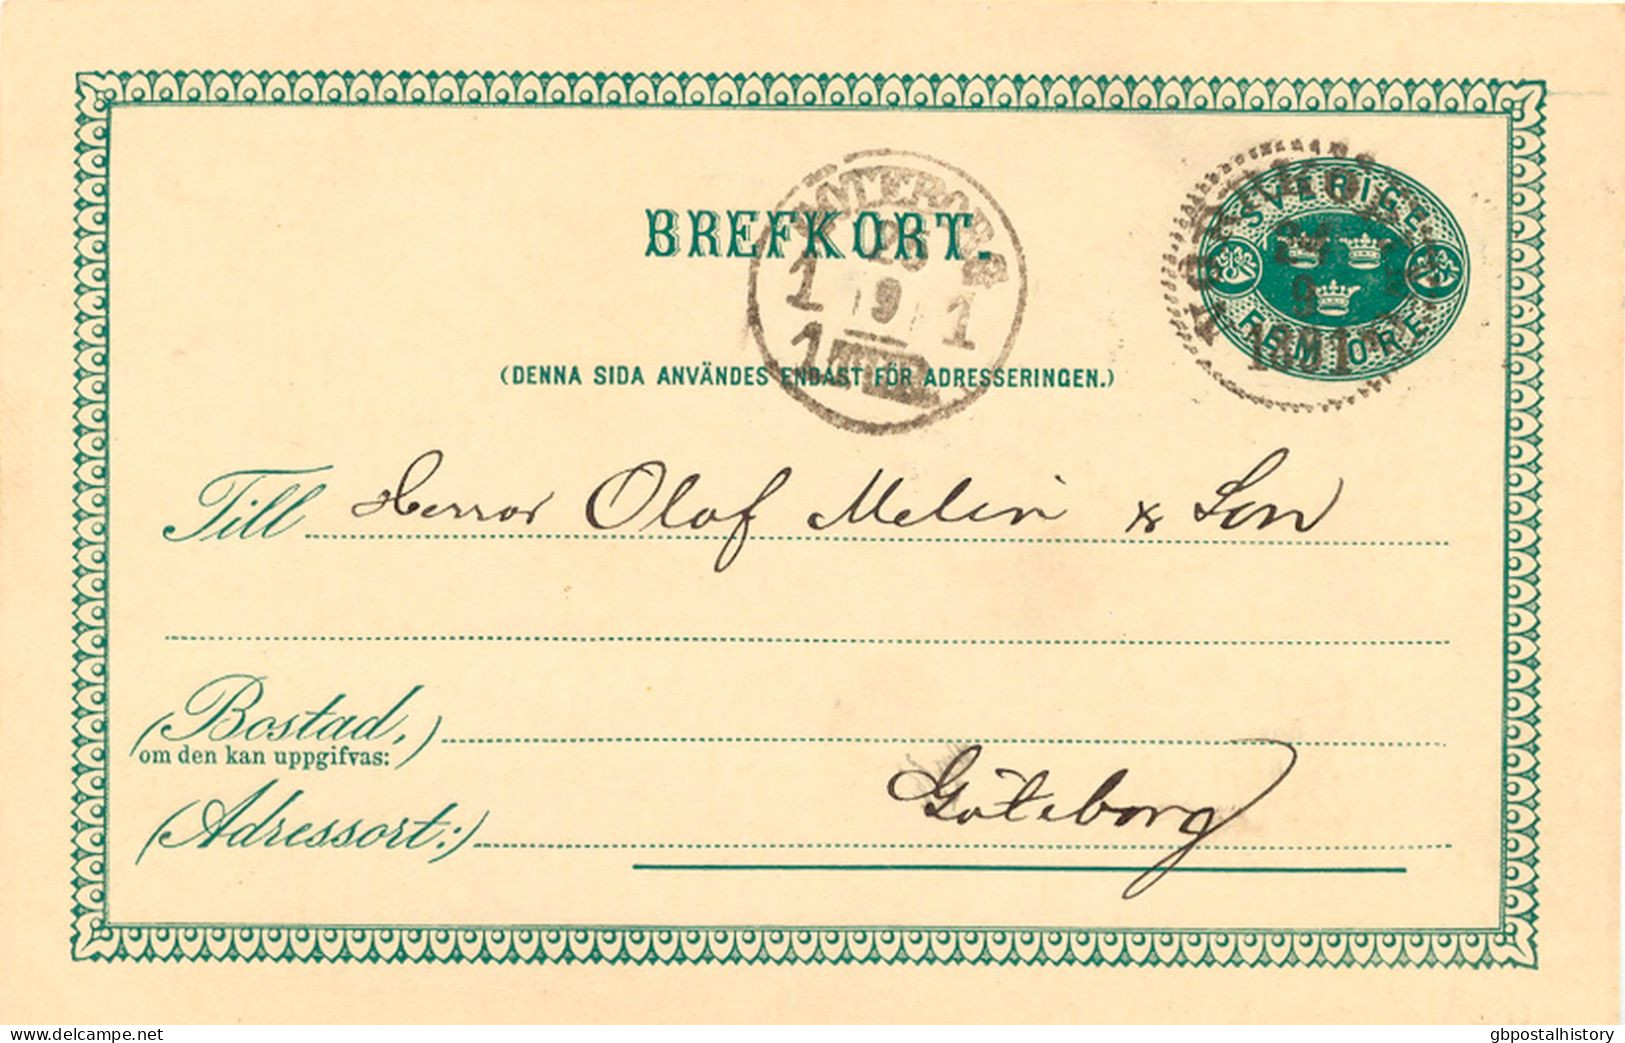 SVERIGE
FEM ÖRE
24
9
1891
BREFKORT.
GÖTEBORG
25
1 9 1
1 TUR
(DENNA SIDA ANVÄNDES ENDAST FÖR ADRESSERINGEN.)
Till Herrar Olof Melin & Son
(Bostad,
om den kan uppgifvas:)
(Adressort:) Göteborg
Delcampe.net
gbpostalhistory